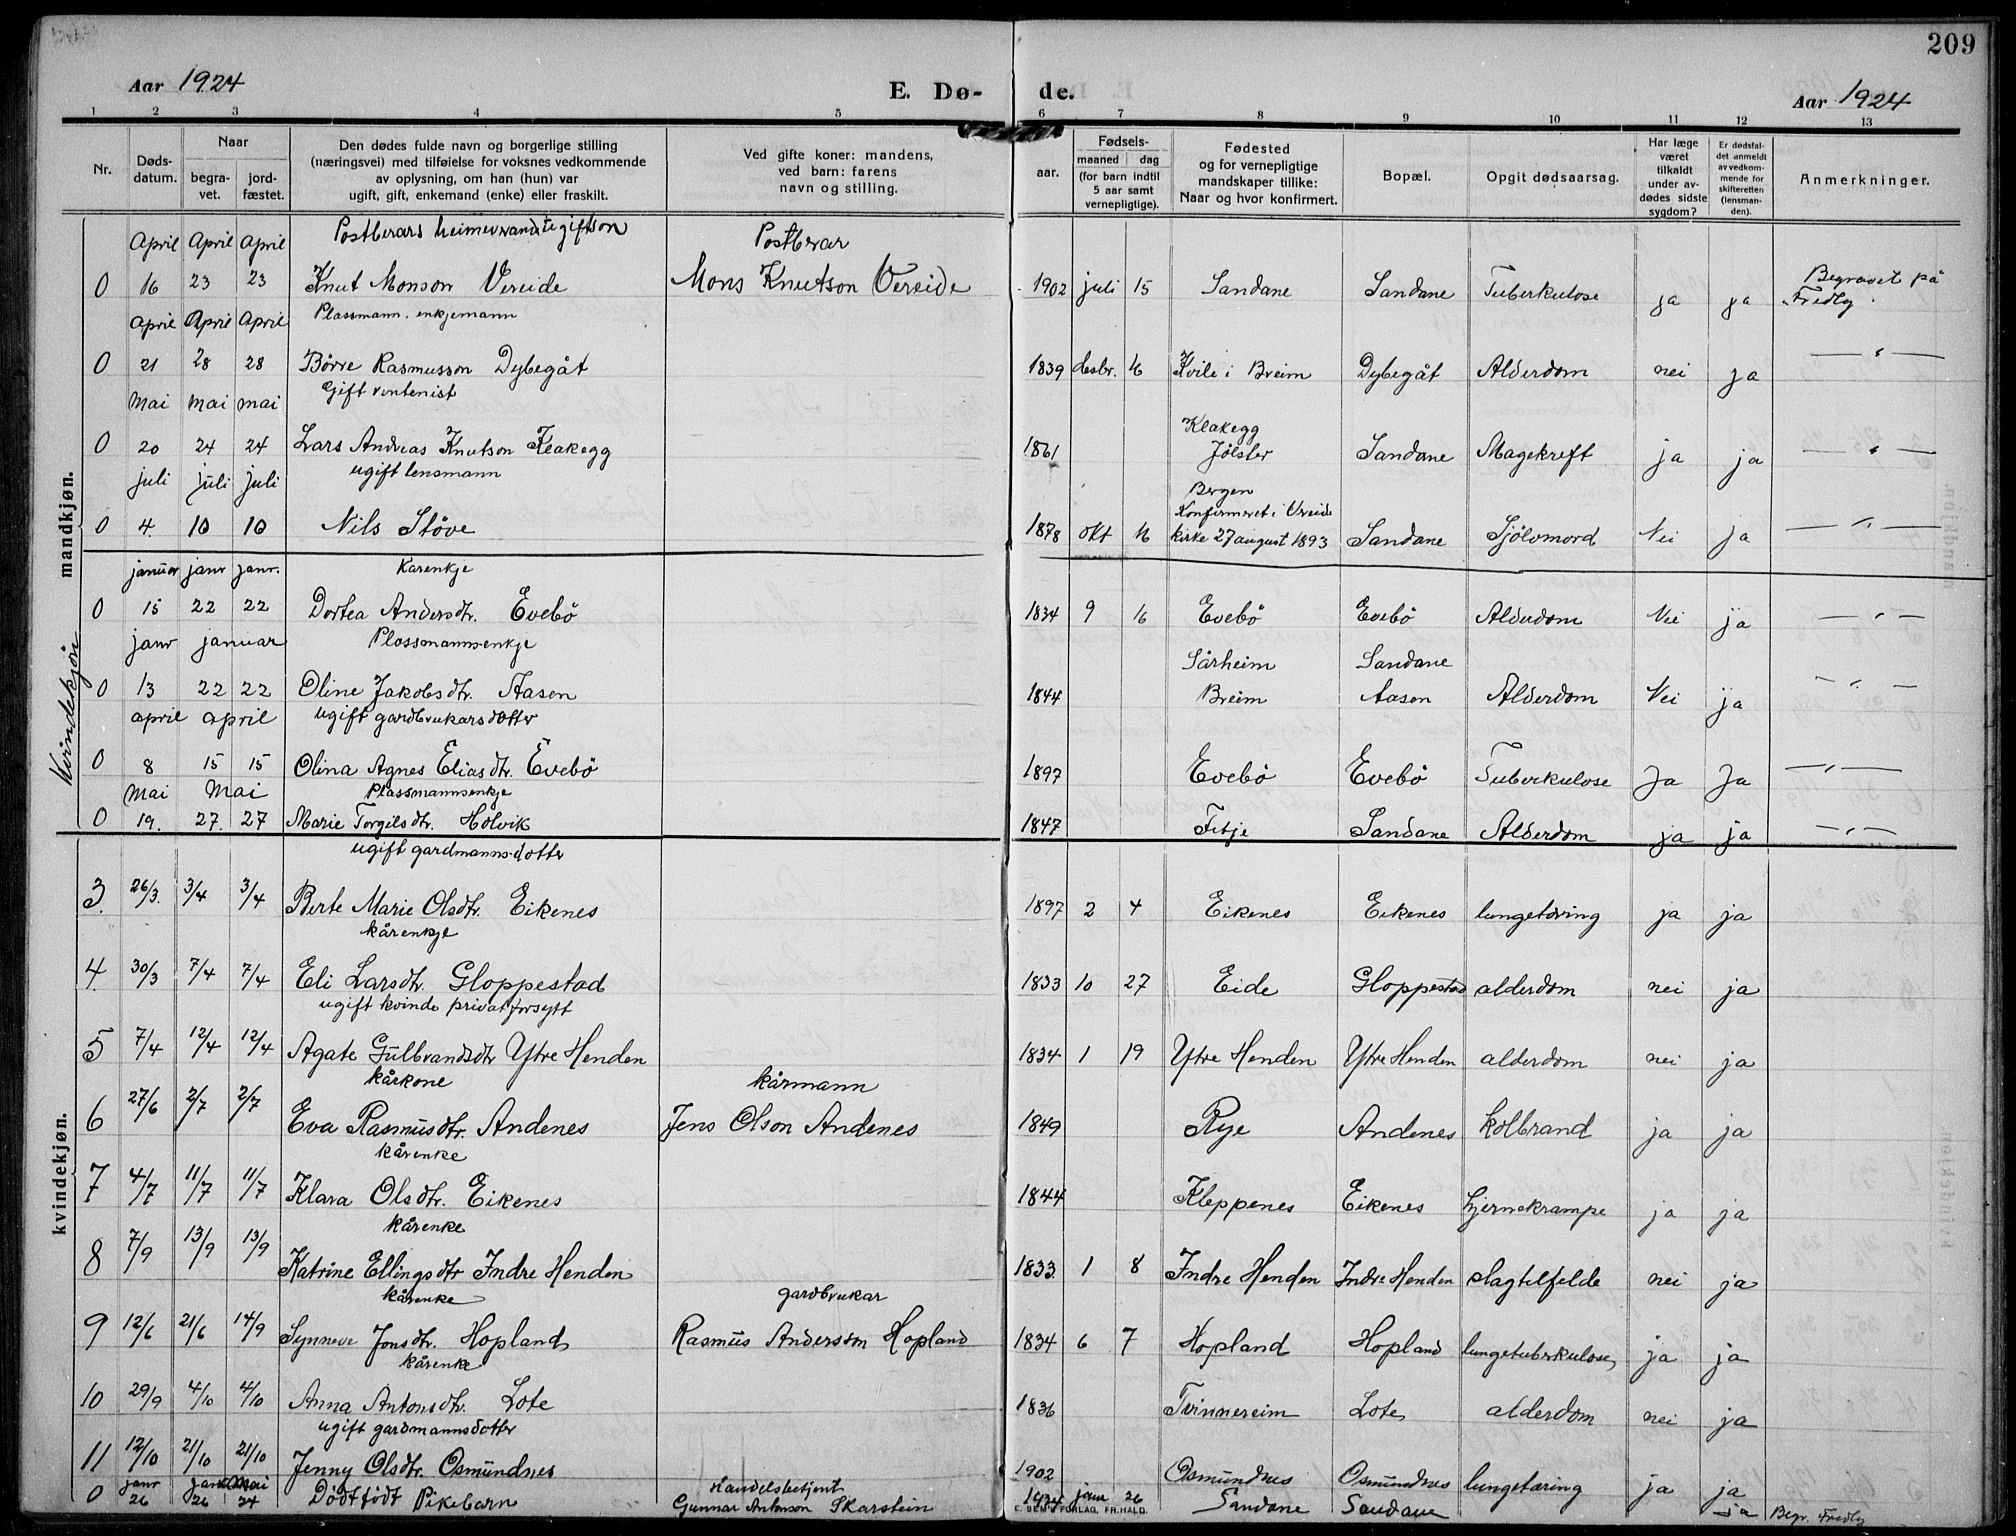 209
Aar 1924 E. Dø- de. Aar 1924
1 2 3 4 5 6 7 8 9 10 11 12 13
Nr.
Døds-
datum.
Naar
begra-
vet.
jord-
fæstet.
Den dødes fulde navn og borgerlige stilling
(næringsvei) med tilføielse for voksnes vedkommende
av oplysning, om han (hun) var
ugift, gift, enkemand (enke) eller fraskilt.
Ved gifte koner: mandens,
ved barn: farens
navn og stilling.
aar.
Fødsels-
maaned dag
(for barn indtil
5 aar samt
vernepligtige).
Fødested
og for vernepligtige
mandskaper tillike:
Naar og hvor konfirmert.
Bopæl.
Opgit dødsaarsag.
Har læge
været
tilkaldt
under av-
dødes sidste
sygdom?
Er dødsfal-
det anmeldt
av vedkom-
mende for
skifteretten
(lensman-
den).
Anmerkninger.
mandkjøn.
April April April Postberars ugift son Postberar
0 16 23 23 Knut Monson Vereide Mons Knutson Vereide 1902 juli 15 Sandane Sandane Tuberkulose ja ja Begravet på Fredly.
April April April Plassmann. enkjemann
0 21 28 28 Børre Rasmusson Dybegåt 1839 desbr. 16 Kvile i Breim Dybegåt Alderdom nei ja — " —
Mai mai mai Gift rentenist
0 20 24 24 Lars Andreas Knutson Klakegg 1861 Klakegg Jølster Sandane Magekreft ja ja — " —
juli juli juli ugift lensmann
0 4. 10 10 Nils Støve 1878 okt 16 Bergen Konfirmeret i Vreide kirke 27 august 1893 Sandane Sjølvmord Nei ja — " —
Kvindekjøn
januar janr janr. Karenkje
0 15 22 22 Dortea Andersdtr. Evebø 1834 9 16 Evebø Evebø Alderdom Nei ja — " —
janr januar Plassmannsenkje
0 13 22 22 Oline Jakobsdtr. Aasen 1844 Sårheim Breim Sandane Aasen Alderdom Nei ja — " —
april april ugift gardbrukarsdotter
0 8 15 15 Olina Agnes Eliasdtr. Evebø 1897 Evebø Evebø Tuberkulose Ja Ja — " —
Mai Mai Plassmannsenkje
0 19. 27. 27 Marie Torgilsdtr. Holvik 1847 Fitje Sandane Alderdom ja ja — " —
kvindekjøn.
ugift gardmannsdotter
3. 26/3. 3/4 3/4 Berte Marie Olsdtr. Eikenes 1897 2 4 Eikenes Eikenes lungetæring ja ja
kårenkje
4. 30/3 7/4 7/4 Eli Larsdtr. Gloppestad 1833 10 27 Eide Gloppestad alderdom nei ja
ugift kvinde privat forsytt
5 7/4 12/4 12/4 Agate Gulbrandsdtr Ytre Henden 1834 1 19 Ytre Henden Ytre Henden alderdom nei ja
kårkone kårmann
6 27/6 2/7 2/7 Eva Rasmusdtr. Andenes Jens Olson Andenes 1849 Rye Andenes kolbrand ja ja
kårenke
7 4/7 11/7 11/7 Klara Olsdtr. Eikenes 1844 Kleppenes Eikenes hjernekrampe ja ja
kårenke
8 7/9 13/9 13/9 Katrine Ellingsdtr Indre Henden 1833. 1 8 Indre Henden Indre Henden slagtilfelde nei ja
kårenke gardbrukar
9 12/6 21/6 14/9 Synneve Jonsdtr. Hopland Rasmus Andersson Hopland 1834 6 7 Hopland Hopland lungetuberkulose, ja ja
kårenke
10 29/9 4/10 4/10 Anna Antonsdtr. Lote 1836 Tvinnereim Lote alderdom nei ja
ugift gardmannsdotter
11 12/10 21/10 21/10 Jenny Olsdtr. Osmundnes 1902 Osmundnes Osmundnes lungetæring ja ja
janr Mai Handelsbetjent
0 26 26 24 Dødfødt Pikebarn Gunnar Antonson Skarstein 1924 janr 26 Sandane Sandane ja Begr. Fredly
E. SEM'S FORLAG, FR.HALD.